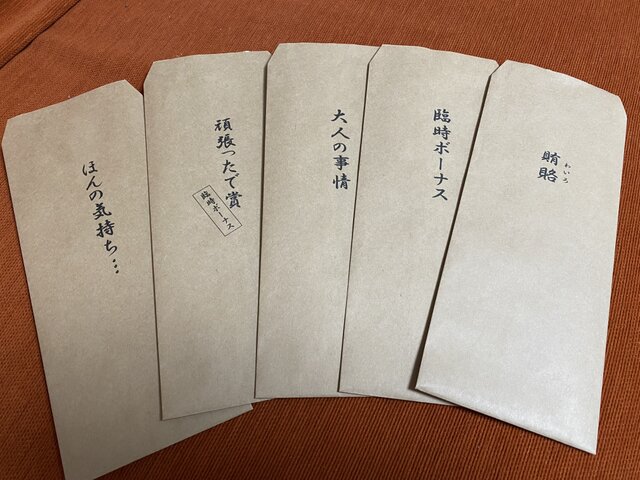 ほんの気持ち…
頑張ったで賞
臨時ボーナス
大人の事情
臨時ボーナス
賄賂
わいろ